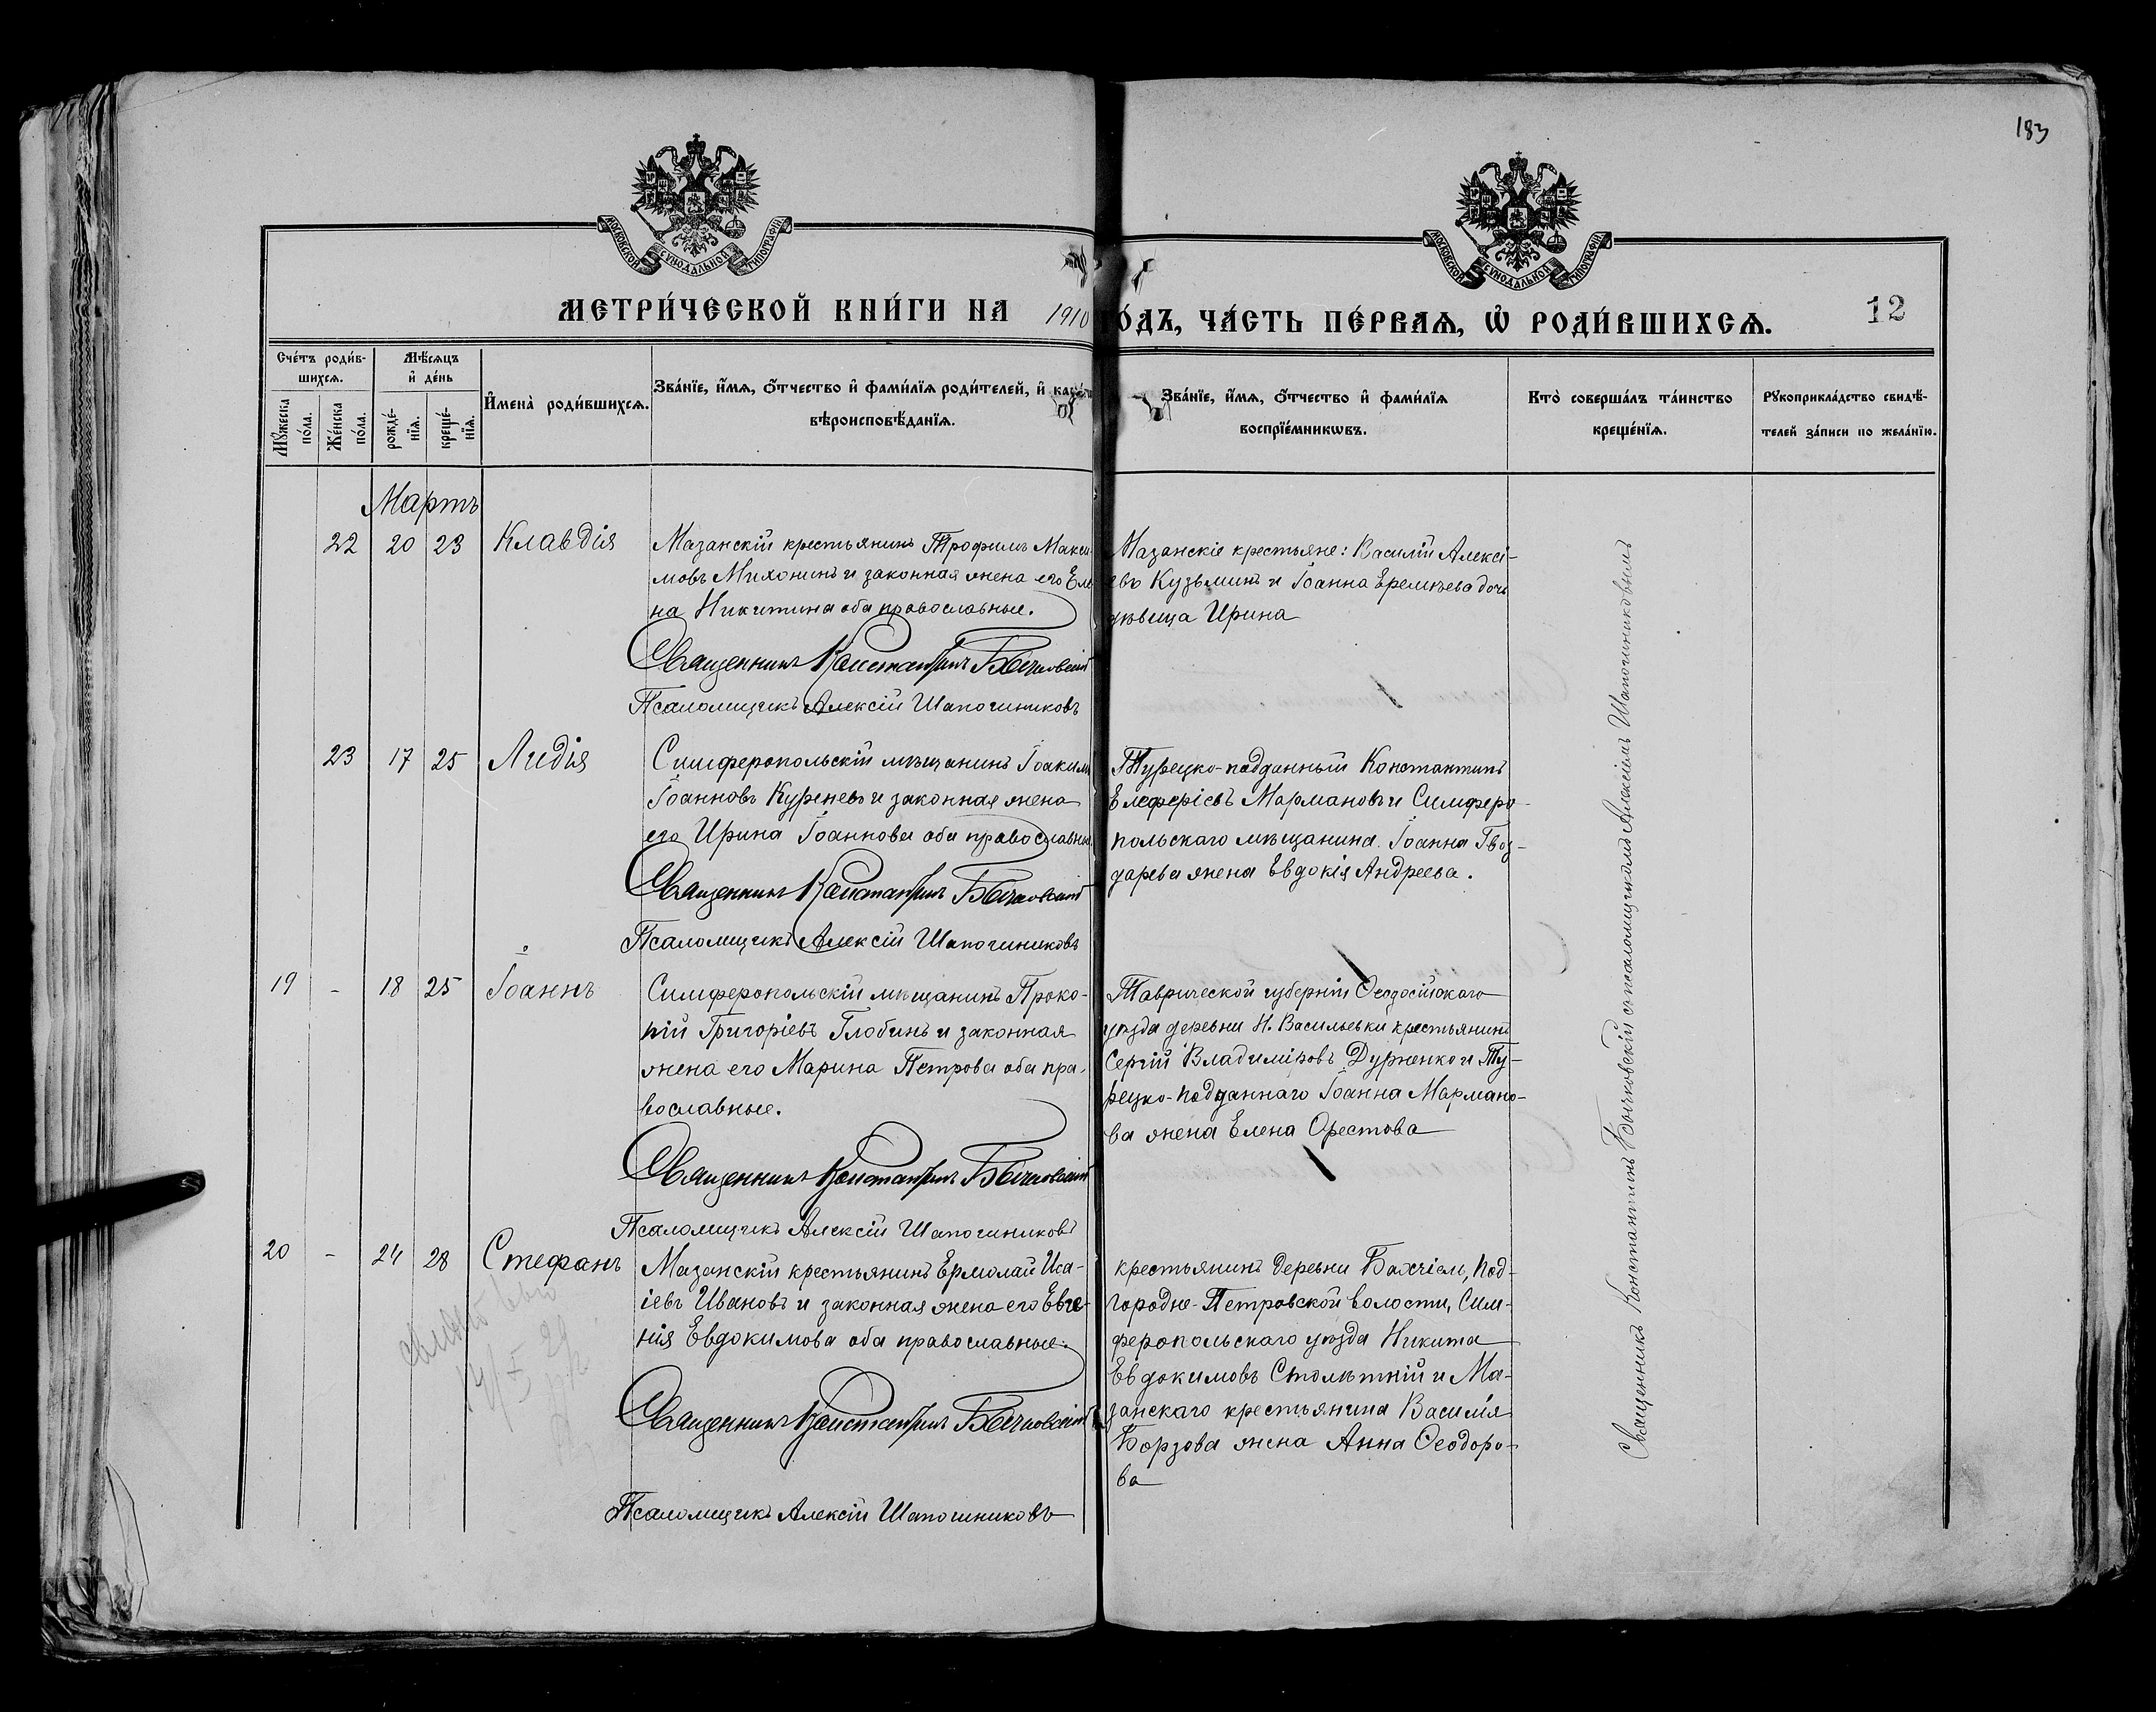 183
МОСКОВСКОЙ СѴНОДАЛЬНОЙ ТИПОГРАФІИ
МОСКОВСКОЙ СѴНОДАЛЬНОЙ ТИПОГРАФІИ
МЕТРИ́ЧЕСКОЙ КНИ́ГИ НА 1910
О́ДЪ, ЧА́СТЬ ПЕ́РВАѦ, Ѡ҆ РОДИ́ВШИХСѦ.
12
Сче́тъ роди́в-
шихсѧ.
Мꙋ́жеска по́ла.
Же́нска по́ла.
Мѣ́сѧцъ
и҆ де́нь
рожде́-
нїѧ.
креще́-
нїѧ.
И҆мена̀ роди́вшихсѧ.
Зва́нїе, и҆́мѧ, ѻ҆́тчество и҆ фами́лїѧ роди́телей, и҆
вѣроисповѣ́данїѧ.
Зва́нїе, и҆́мѧ, ѻ҆́тчество и҆ фами́лїѧ
воспрїе́мникѡвъ.
Кто̀ соверша́лъ та́инство
креще́нїѧ.
Рꙋкоприкла́дство свидѣ́-
телей за́писи по жела́нїю.
Мартъ
22 20 23 Клавдія
Мазанскій крестьянинъ Трофимъ Макси
мовъ Михонинъ и законная жена его Еле
на Никитина оба православные.
Священникъ Константинъ Бычковскій
Псаломщикъ Алексій Шапошниковъ
Мазанскіе крестьяне: Василій Алексі-
евъ Кузьминъ и Іоанна Еремѣева дочь
дѣвица Ирина
23 17 25 Лидія
Симферопольскій мѣщанинъ Іоакимъ
Іоанновъ Куреневъ и законная жена
его Ирина Іоаннова оба православные
Священникъ Константинъ Бычковскій
Псаломщикъ Алексій Шапошниковъ
Турецко-подданный Константинъ
Елеферіевъ Мармановъ и Симферо-
польскаго мѣщанина Іоанна Гвоз-
дарева жена Евдокія Андреева.
19 - 18 25 Іоаннъ
Симферопольскій мѣщанинъ Проко-
пій Григоріевъ Глобинъ и законная
жена его Марина Петрова оба пра-
вославные.
Священникъ Константинъ Бычковскій
Псаломщикъ Алексій Шапошниковъ
Таврической губерніи Ѳеодосійскаго
уѣзда деревни Н. Васильевки крестьянинъ
Сергій Владиміровъ Дурненко и Ту-
рецко-подданнаго Іоанна Мармано-
ва жена Елена Орестова
20 - 24 28 Стефанъ
Мазанскій крестьянинъ Ермолай Иса-
іевъ Ивановъ и законная жена его Евге-
нія Евдокимова оба православные.
Священникъ Константинъ Бычковскій
Псаломщикъ Алексій Шапошниковъ
крестьянинъ деревни Бахчіели, Под-
городне-Петровской волости, Сим-
феропольскаго уѣзда Никита
Евдокимовъ Столѣтній и Ма-
занскаго крестьянина Василія
Борзова жена Анна Ѳеодоро-
ва
Священникъ Константинъ Бычковскій съ псаломщикомъ Алексіемъ Шапошниковымъ